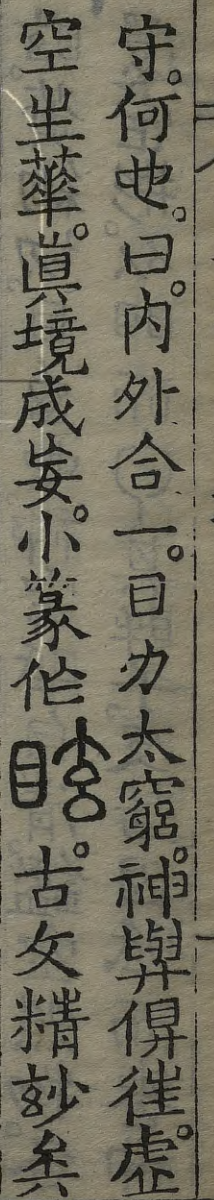 守。何也。曰。内外合一。目力太窮。神與俱徃。虛
空生華。眞境成妄。小篆作。古文精玅矣